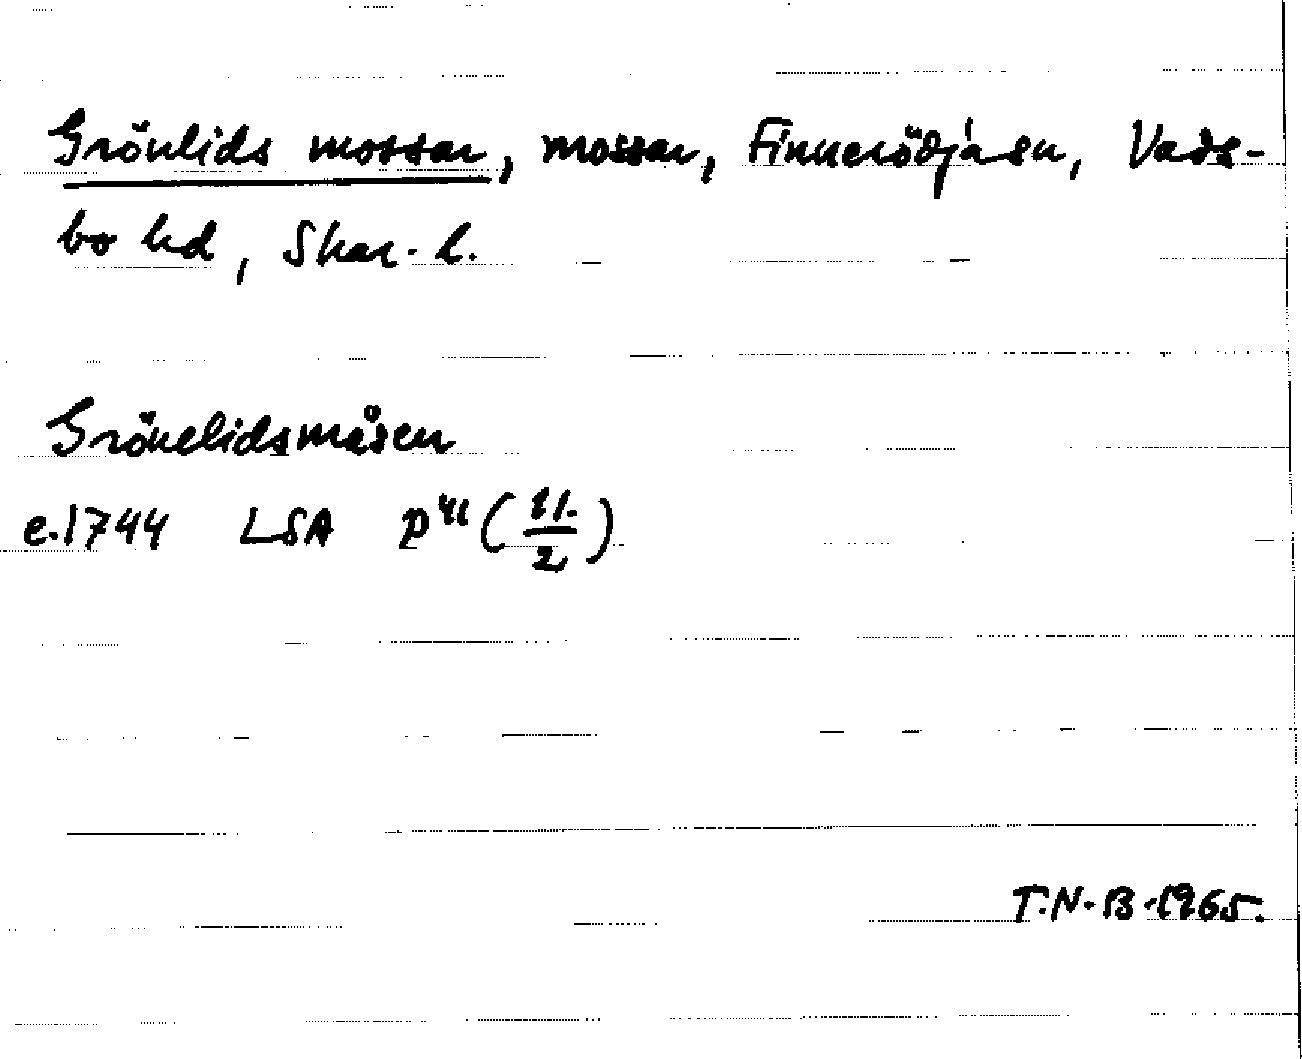 Grönlids mossar, mossar, Finnerödja sn, Vads-
bo hd, Skar. l.
Grönelidsmåsen
e. 1744 LSA P 41 (11./2)
T.N-B-1965.